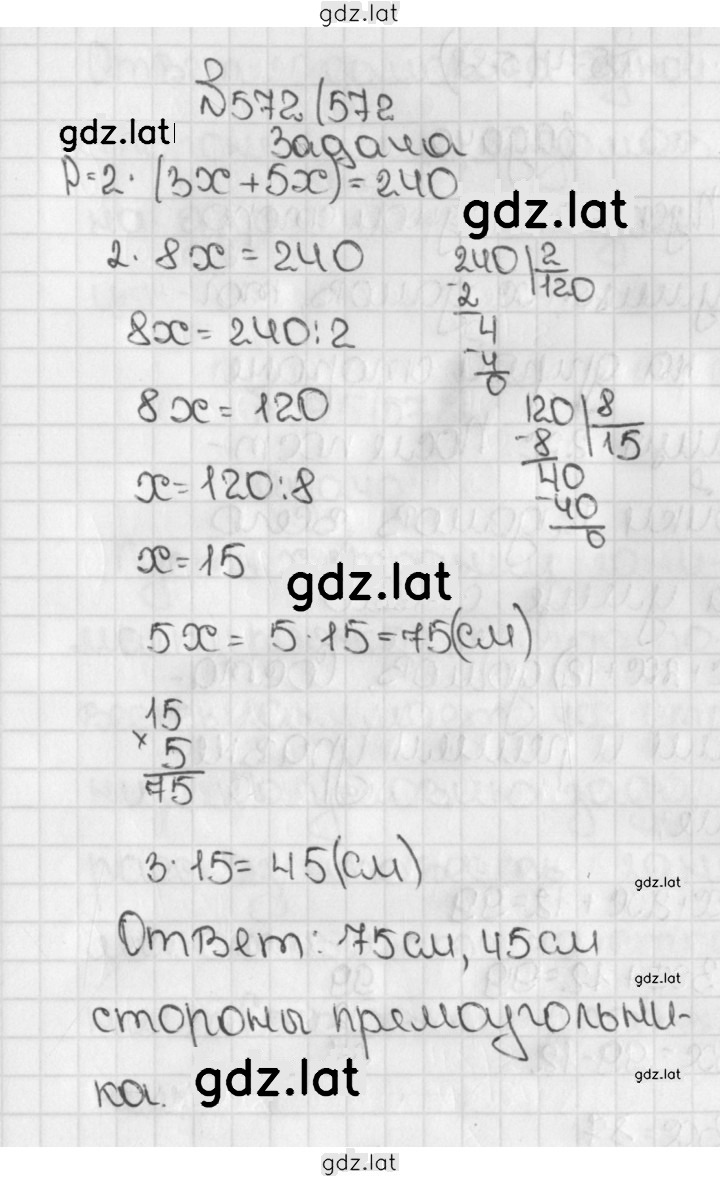 gdz.lat
№572 (572
gdz.lat
Задача
P=2·(3x+5x)=240
gdz.lat
2·8x=240
240 | 2
-2 | 120
4
-4
0
8x=240:2
8x=120
120 | 8
-8 | 15
40
-40
0
x=120:8
x=15
gdz.lat
5x=5·15=75(см)
15
× 5
75
3·15=45(см)
gdz.lat
Ответ: 75см, 45см
gdz.lat
стороны прямоугольни-
ка.
gdz.lat
gdz.lat
gdz.lat